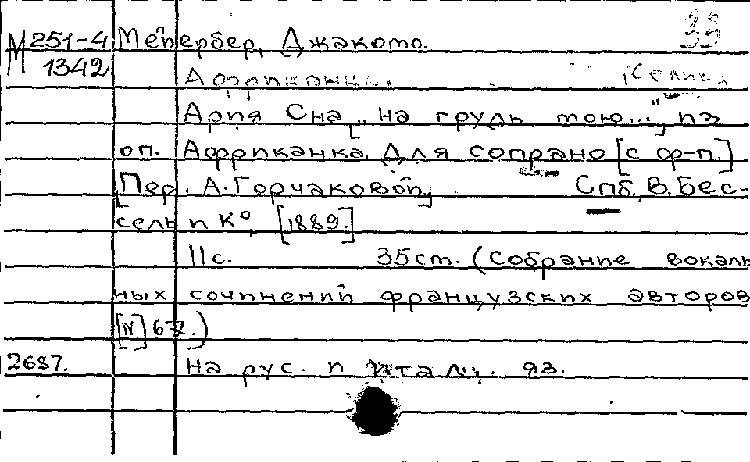 М 251-4 Мейербер, Джакомо. 33
1342
Африканка. (Селика
Ария Сна „На грудь мою..." из
оп. Африканка. Для сопрано [с ф-п.]
[Пер. А. Горчаковой] Спб, В. Бес-
сель и К° [1889.]
11 с. 35 ст. (Собрание вокаль
ных сочинений французских авторов
[№]
2687. На рус. и итал. яз.